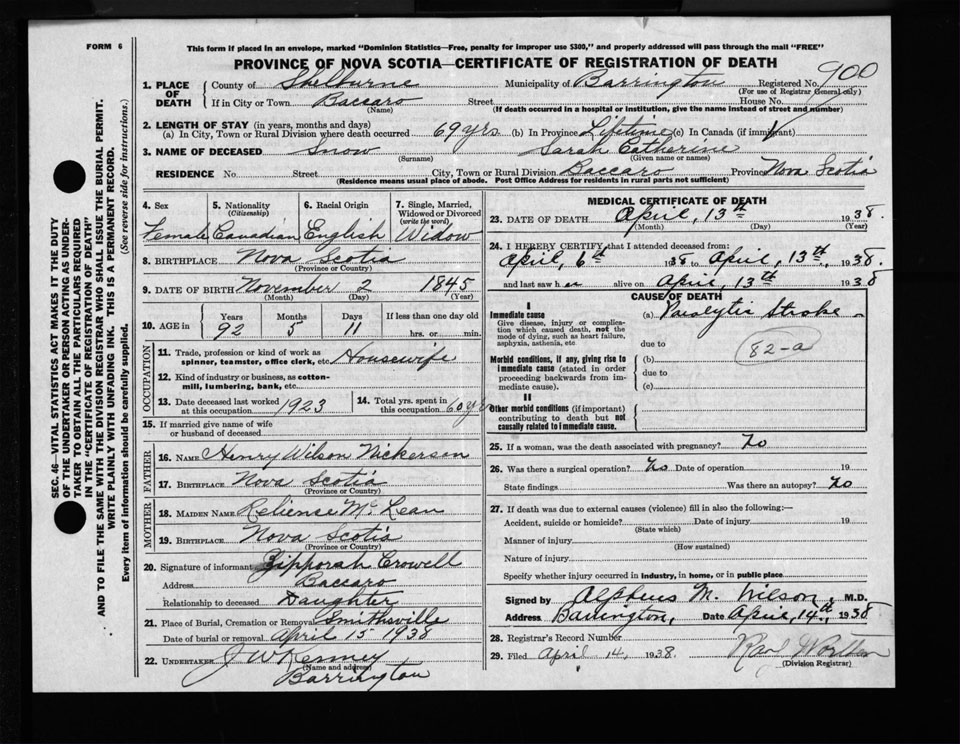 FORM 6
This form if placed in an envelope, marked "Dominion Statistics—Free, penalty for improper use $300," and properly addressed will pass through the mail "FREE"
PROVINCE OF NOVA SCOTIA—CERTIFICATE OF REGISTRATION OF DEATH
SEC. 46—VITAL STATISTICS ACT MAKES IT THE DUTY
OF THE UNDERTAKER OR PERSON ACTING AS UNDER-
TAKER TO OBTAIN ALL THE PARTICULARS REQUIRED
IN THE "CERTIFICATE OF REGISTRATION OF DEATH"
AND TO FILE THE SAME WITH THE DIVISION REGISTRAR WHO SHALL ISSUE THE BURIAL PERMIT.
WRITE PLAINLY WITH UNFADING INK. THIS IS A PERMANENT RECORD.
Every item of information should be carefully supplied. (See reverse side for instructions.)
1. PLACE OF DEATH County of Shelburne Municipality of Barrington Registered No. 900
(For use of Registrar General only)
If in City or Town Baccaro Street House No.
(Name) (If death occurred in a hospital or institution, give the name instead of street and number)
2. LENGTH OF STAY (in years, months and days)
(a) In City, Town or Rural Division where death occurred 69 yrs (b) In Province Lifetime (c) In Canada (if immigrant)
3. NAME OF DECEASED Snow Sarah Catherine
(Surname) (Given name or names)
RESIDENCE No Street City, Town or Rural Division Baccaro Province Nova Scotia
(Residence means usual place of abode. Post Office Address for residents in rural parts not sufficient)
4. Sex 5. Nationality (Citizenship) 6. Racial Origin 7. Single, Married, Widowed or Divorced (write the word)
Female Canadian English Widow
8. BIRTHPLACE Nova Scotia
(Province or Country)
9. DATE OF BIRTH November 2 1845
(Month) (Day) (Year)
10. AGE in Years Months Days If less than one day old
92 5 11 hrs. or min.
OCCUPATION
11. Trade, profession or kind of work as spinner, teamster, office clerk, etc. Housewife
12. Kind of industry or business, as cotton-mill, lumbering, bank, etc.
13. Date deceased last worked at this occupation 1923 14. Total yrs. spent in this occupation 60 yrs
15. If married give name of wife or husband of deceased
FATHER
16. NAME Henry Wilson Nickerson
17. BIRTHPLACE Nova Scotia
(Province or Country)
MOTHER
18. MAIDEN NAME Relience McLean
19. BIRTHPLACE Nova Scotia
(Province or Country)
20. Signature of informant Zipporah Crowell
Address Baccaro
Relationship to deceased Daughter
21. Place of Burial, Cremation or Removal Smithsville
Date of burial or removal April 15 1938
22. UNDERTAKER J W Kenney
(Name and address)
Barrington
MEDICAL CERTIFICATE OF DEATH
23. DATE OF DEATH April, 13th 1938.
(Month) (Day) (Year)
24. I HEREBY CERTIFY that I attended deceased from:
April, 6th 1938 to April, 13th, 1938.
and last saw her alive on April, 13th 1938
CAUSE OF DEATH
I
Immediate cause (a) Paralytic Stroke
Give disease, injury or complication which caused death, not the mode of dying, such as heart failure, asphyxia, asthenia, etc
due to 82-a
Morbid conditions, if any, giving rise to immediate cause (stated in order proceeding backwards from immediate cause).
(b)
due to
(c)
II
Other morbid conditions (if important) contributing to death but not causally related to immediate cause.
25. If a woman, was the death associated with pregnancy? No
26. Was there a surgical operation? No Date of operation 19
State findings Was there an autopsy? No
27. If death was due to external causes (violence) fill in also the following:—
Accident, suicide or homicide? Date of injury 19
(State which)
Manner of injury
(How sustained)
Nature of injury
Specify whether injury occurred in industry, in home, or in public place
Signed by Alpheus M. Wilson, M.D.
Address Barrington, Date April, 14th, 1938
28. Registrar's Record Number
29. Filed April 14, 1938.
(Division Registrar)